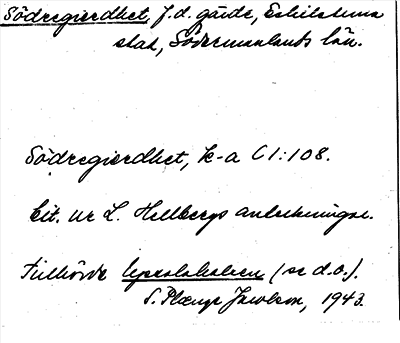 Södregierdhet, f.d. gärde, Eskilstuna
stad, Södermanlands län.
Södregierdhet, k-a C1:108.
Cit. ur L. Hellbergs anteckningar.
Tillhörde (se d.o.).
S. Jacobson, 1943.